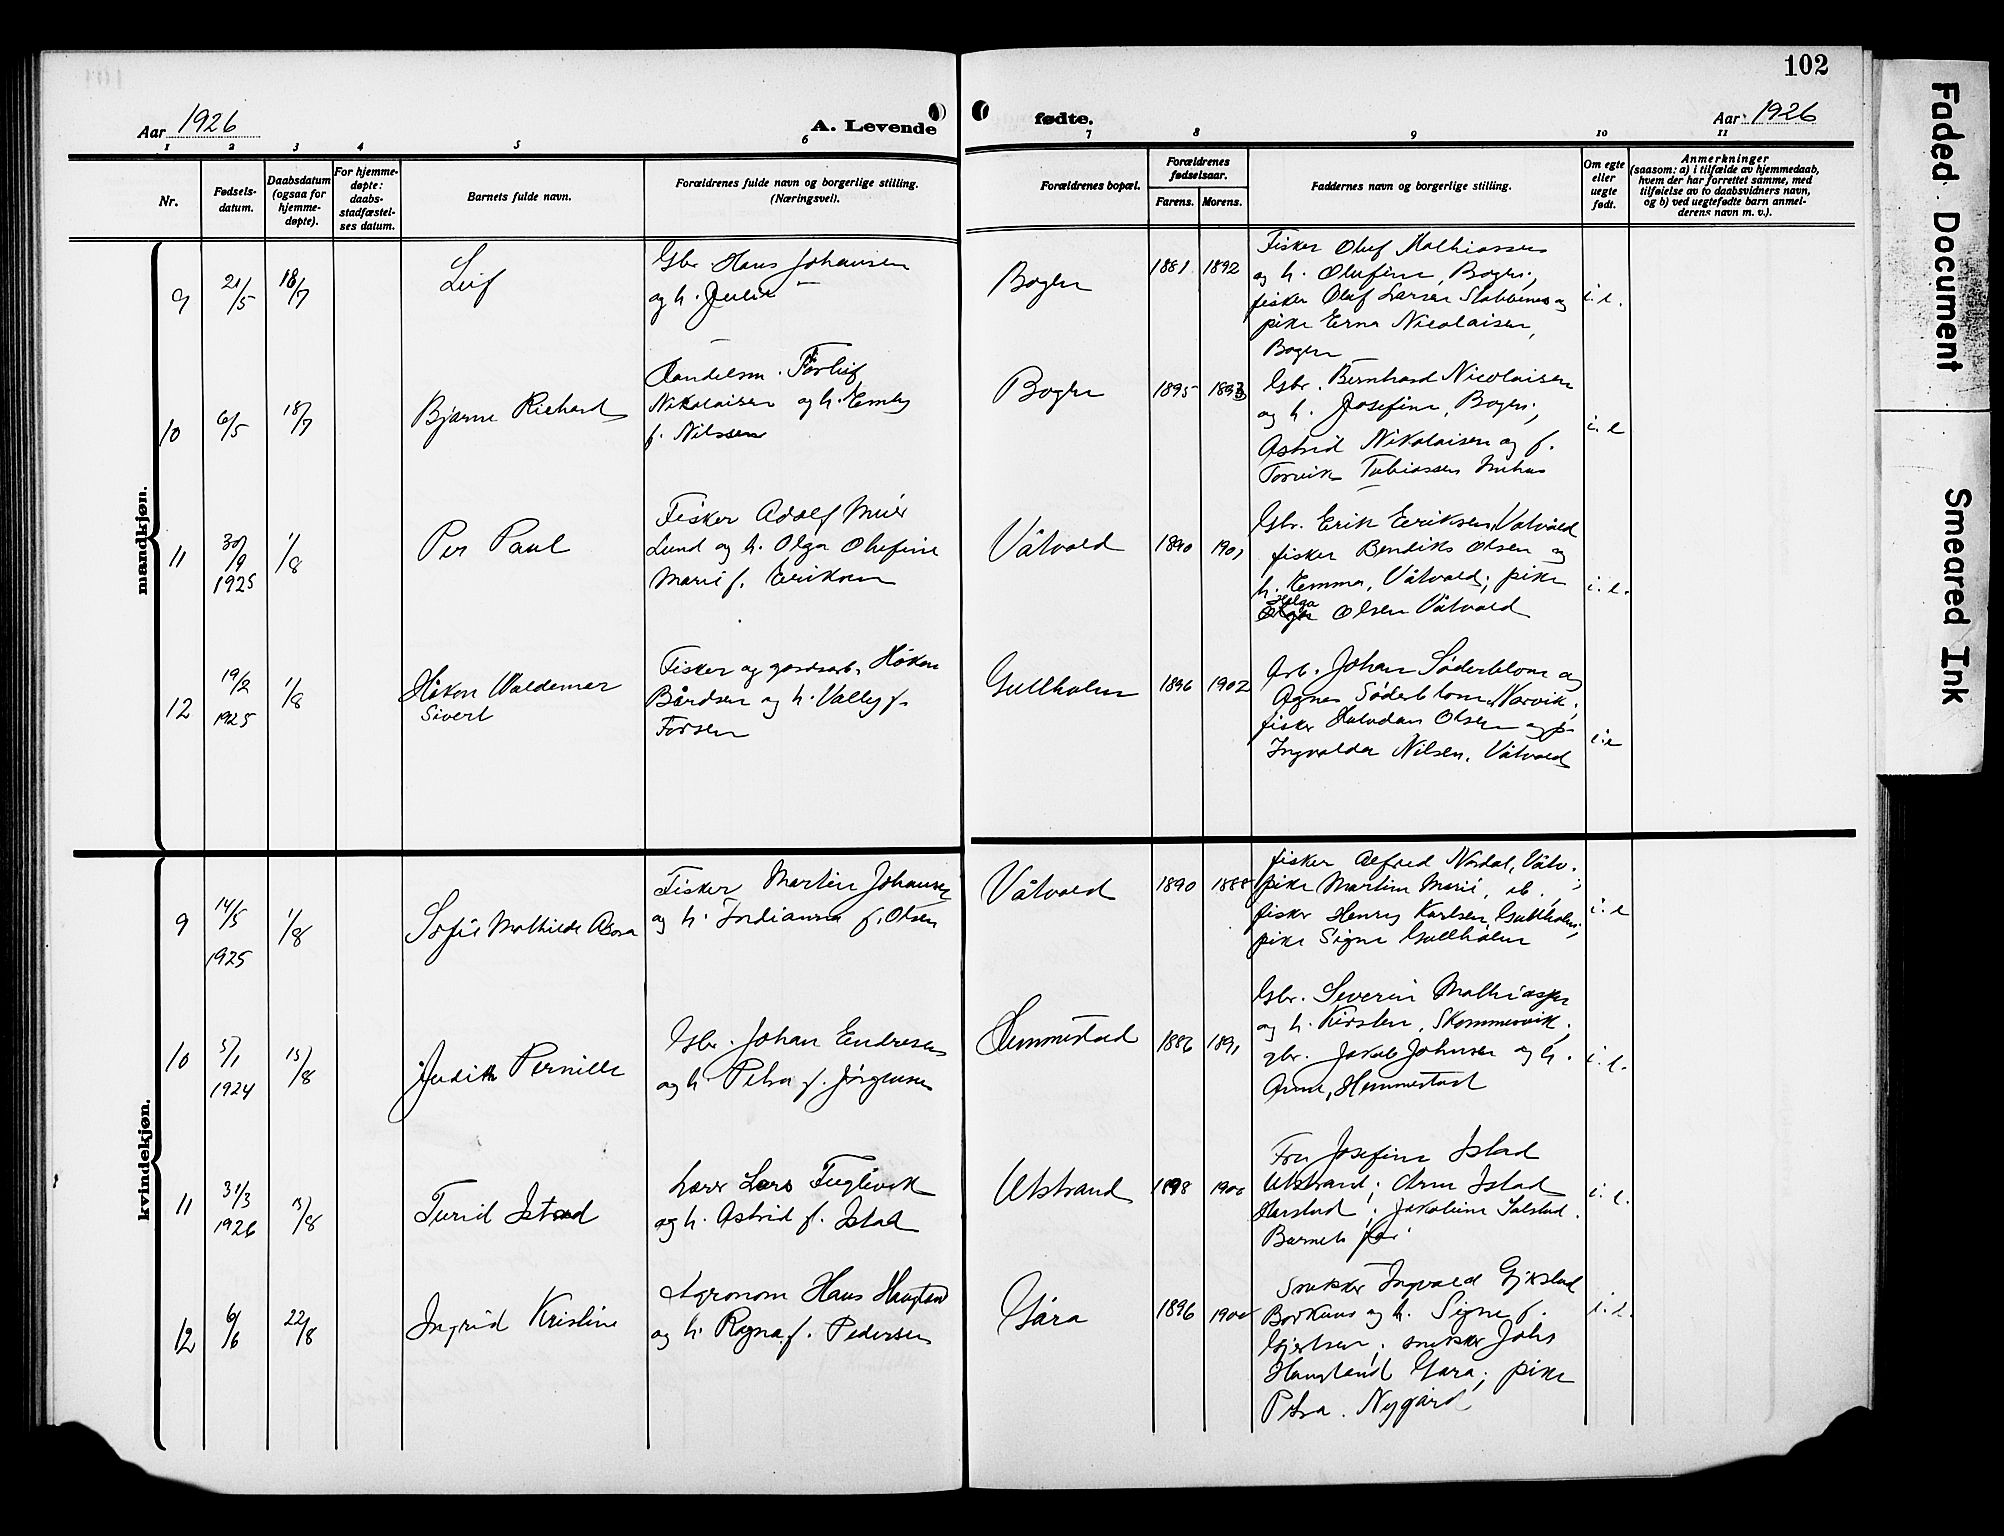 102
Aar 1926
A. Levende
fødte.
Aar 1926
1 2 3 4 5 6
7 8 9 10 11
Nr.
Fødsels-
datum.
Daabsdatum
(ogsaa for
hjemme-
døpte).
For hjemme-
døpte:
daabs-
stadfæstel-
ses datum.
Barnets fulde navn.
Forældrenes fulde navn og borgerlige stilling.
(Næringsvei).
Forældrenes bopæl.
Forældrenes
fødselsaar.
Farens. Morens.
Faddernes navn og borgerlige stilling.
Om egte
eller
uegte
født.
Anmerkninger
(saasom: a) i tilfælde av hjemmedaab,
hvem der har forrettet samme, med
tilføielse av to daabsvidners navn,
og b) ved uegtefødte barn anmel-
derens navn m. v.).
mandkjøn.
9
21/5
18/7
Leif
Gbr. Hans Johansen
og h. Julie
Bogen
1881 1892
Fisker Oluf Mathiassen
og h. Olufine, Bogen;
fisker Oluf Larsen Stabbenes og
pike Erna Nicolaisen,
Bogen
i. e.
10
6/5
18/7
Bjarne Richard
Handelsm.
Nikolaisen og h. Emly
f. Nilssen
Bogen
1895 1893
Gbr. Bernhard Nicolaisen
og h. Josefine, Bogen;
Astrid Nikolaisen og f.
Torvik Tobiassen
i. e
11
30/9
1925
1/8
Per Paul
Fisker Adolf Meier
Lund og h. Olga Olufine
Marie f. Eriksen
Våtvold
1890 1901
Gbr. Erik Eeriksen, Våtvold
fisker Bendiks Olsen og
h. Emma, Våtvold; pike
Helga
Olsen Våtvold
i. e.
12
19/2
1925
1/8
Håkon Waldemar
Sivert
Fisker og gårdsarb. Håkon
Bårdsen og h. Valley f.
Forsen
Gullholm
1896 1902
Arb. Johan Söderblom og
Agnes Söderblom, Narvik;
fisker Halvdan Olsen og p.
Ingvalda Nilsen, Våtvold
i. e
kvindekjøn.
9
14/5
1925
1/8
Sofie Mathilde
Fisker Martin Johansen
og h. Indianna f. Olsen
Våtvold
1890 1888
fisker Alfred Nordal, Våtv.;
pike Martine Marie, ib.;
fisker Henry Karlsen Gullholm;
pike Signe Gullholm
i. e
10
5/1
1924
15/8
Judith Pernille
Gbr. Johan Endresen
og h. Petra f. Jørgensen
Hemmestad
1886 1891
Gbr. Severin Mathiassen
og h. Kirsten, Skommervik;
gbr. Jakob Johnsen og h.
Anna, Hemmestad
i. e.
11
31/3
1926
15/8
Turid Istad
Lærer Lars Fuglevik
og h. Astrid f. Istad
Utstrand
1898 1900
Fru Josefine Istad
Utstrand; Arne Istad
Harstad; Jakobine Salstad.
Barnets far
i. e.
12
6/6
22/8
Ingrid Kristine
Agronom Hans Haugland
og h. Ragna f. Pedersen
Gåra
1896 1900
Snekker Ingvald Gjikstad
Borkenes og h. Signe f.
Gjertsen; snekker Johs
Haugland Gåra; pike
Petra Nygård
i. e.
Faded Document
Smeared Ink